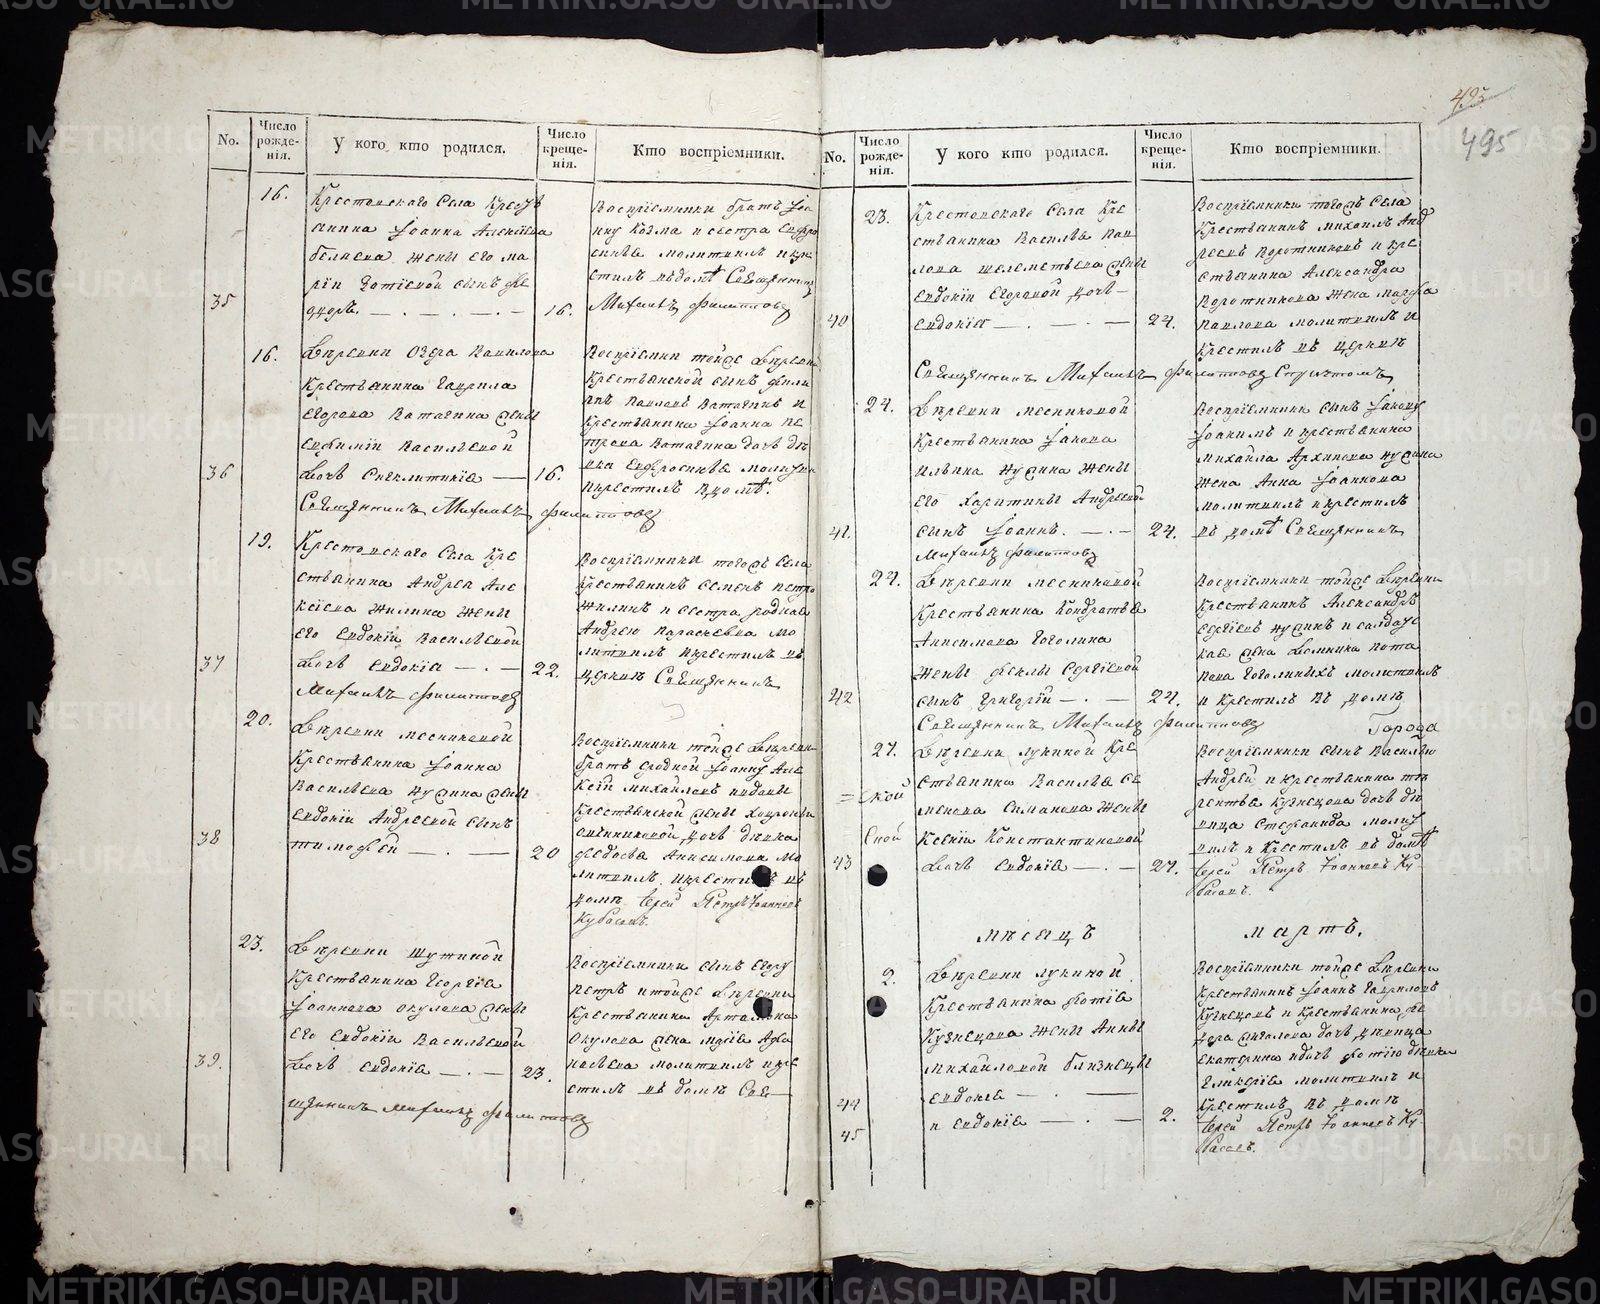 495
495
No.
Число рожде-нія.
У кого кто родился.
Число креще-нія.
Кто воспріемники.
16.
Крестовскаго Села Кресть
янина Іоанна Алексіева
Беляева жены его Ма
ріи Фотіевой сынъ Ѳе
35
одоръ. — . — . — . —
16.
Воспріемники братъ Іоа
нну Козма и сестра Евфро
синія молитвилъ и кре
стилъ въ домѣ Священникъ
Михаилъ Филипповъ
16.
Деревни Озера Вавилова
Крестьянина Гаврила
Егорова Ватагина жены
Евфиміи Васильевой
36
Дочь Синклитикія —
16.
Воспріемни тойже Деревни
Крестьянской сынъ Фили
ппъ Павловъ Ватагинъ и
Крестьянина Іоанна Пе
трова Ватагина дочь дѣ
вка Евфросинья молитви
и крестилъ в домѣ.
Священникъ Михаилъ Филипповъ
19.
Крестовскаго Села Кре
стьянина Андрея Але
ксіева Жилина жены
его Евдокіи Васильевой
37
Дочь Евдокія — . —
22.
Воспріемники тогожъ Села
Крестьянинъ Семенъ Петро
Жилинъ и сестра родная
Андрею Параскевва мо
литвилъ и крестилъ въ
церкви Священникъ
Михаилъ Филипповъ
20.
Деревни Месниковой
Крестьянина Іоанна
Васильева жены
Евдокіи Андреевой сынъ
38
Тимофей — . —
20
Воспріемники тойже Деревни
братъ сродной Іоанну Але
ксій Михайловъ вдовы
Крестьянской жены
дочь дѣвка
Федосья Анисимова мо
литвилъ и крестилъ въ
домѣ Іерей Петръ Іоанновъ
Кубасовъ.
23.
Деревни Шутиной
Крестьянина Георгія
Іоаннова Окулова жены
его Евдокіи Васильевой
39.
Дочь Евдокія — . —
23.
Воспріемники сынъ Егору
Петръ и тойже Деревни
Крестьянина Артамона
Окулова жена Марія Афа
насьева молитвилъ и кре
стилъ въ домѣ Свя—
щенникъ Михаилъ Филипповъ
No.
Число рожде-нія.
У кого кто родился.
Число креще-нія.
Кто воспріемники.
23.
Крестовскаго Села Кре
стьянина Василья Пав
лова Шелементьева жены
Евдокіи Егоровой дочь —
40
Евдокія — . — . —
24.
Воспріемники тогожъ Села
Крестьянинъ Михаилъ Анд
реевъ Воротниковъ и кре
стьянина Александра
Воротникова жена Марфа
Павлова молитвилъ и
Крестилъ въ церкви
Священникъ Михаилъ Филипповъ
24.
Деревни Месниковой
Крестьянина Іакова
Ильина жены
его Харитины Андреевой
41.
сынъ Іоаннъ. — . —
24.
Воспріемники сынъ Іакову
Іоакимъ и крестьянина
Михайла Архипова
жена Анна Іоаннова
молитвилъ и крестилъ
въ домѣ Священникъ
Михаилъ Филипповъ
24.
Деревни Месниковой
Крестьянина Кондратья
Анисимова Гоголина
жены Феклы Сергіевой
42
сынъ Григорій — . —
24.
Воспріемники тойже Деревни
Крестьянинъ Александръ
Сергіевъ и солдатс
кая жена Домника Пота
пова Гоголиныхъ молитвилъ
и Крестилъ въ домѣ
Священникъ Михаилъ Филипповъ
Города
27.
Деревни Лукиной Кре
стьянина Василья Се
менова Симанова жены
=ской
Ксеніи Константиновой
43
Дочь Евдокія — . —
27.
Воспріемники сынъ Василью
Андрей и крестьянина
рентья Кузнецова дочь дѣ
вица Стефанида молит
вилъ и Крестилъ въ домѣ
Іерей Петръ Іоанновъ Ку-
басовъ.
мѣсяцъ
мартъ.
2.
Деревни Лукиной
Крестьянина Фотія
Кузнецова жены Анны
Михайловой близнецы
44
Евдокія — . —
45
и Евдокія — . —
2.
Воспріемники тойже Деревни
Крестьянинъ Іоаннъ Гавриловъ
Кузнецовъ и крестьянина Ѳе
дора дочь дѣвица
Екатерина и дочь Фотію дѣвка
Гликерія молитвилъ и
крестилъ въ домѣ
Іерей Петръ Іоанновъ Ку-
басовъ.
METRIKI.GASO-URAL.RU